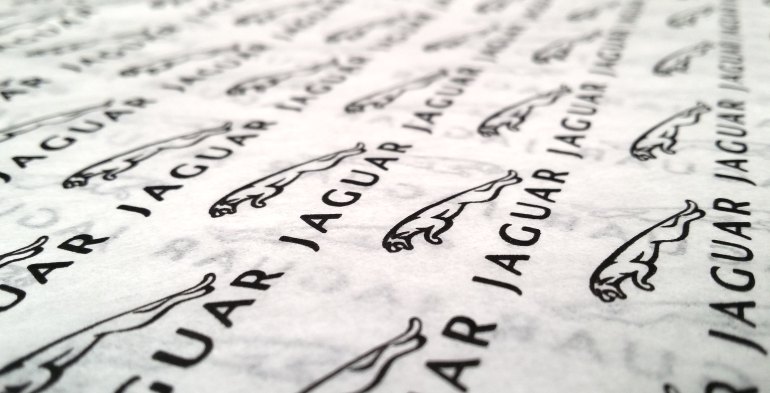 JAGUAR
JAGUAR
JAGUAR
JAGUAR
JAGUAR
JAGUAR
JAGUAR
JAGUAR
JAGUAR JAGUAR JAGUAR JAGUAR JAGUAR
UAR
GUAR
UAR